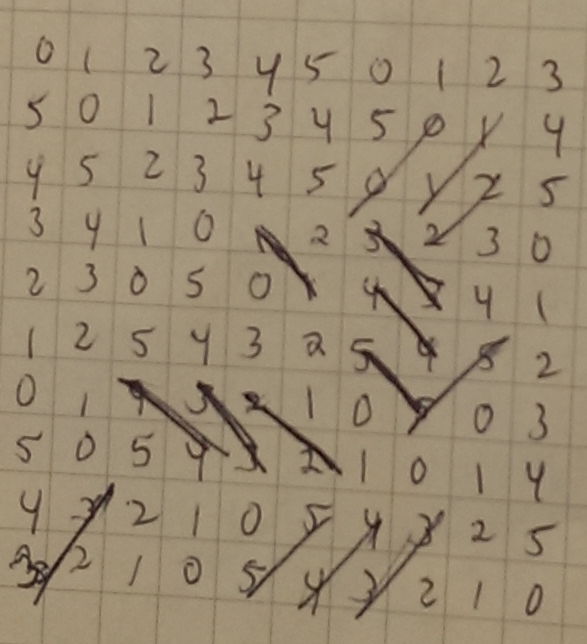 0 1 2 3 4 5 0 1 2 3
5 0 1 2 3 4 5 0 1 4
4 5 2 3 4 5 0 1 2 5
3 4 1 0 1 2 3 2 3 0
2 3 0 5 0 1 4 3 4 1
1 2 5 4 3 2 5 4 5 2
0 1 4 3 2 1 0 5 0 3
5 0 5 4 3 2 1 0 1 4
4 3 2 1 0 5 4 3 2 5
3 2 1 0 5 4 3 2 1 0